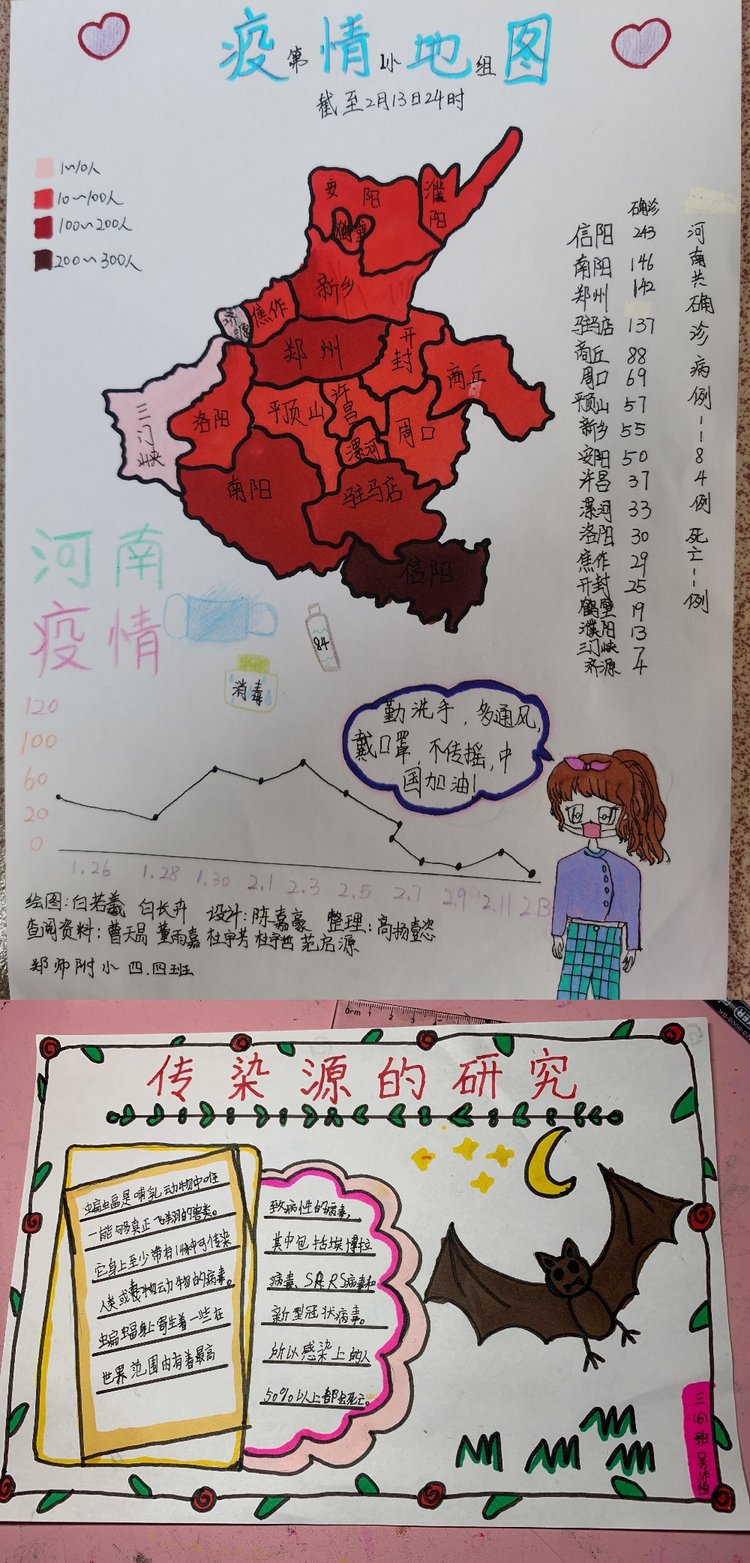 疫情地图
第1小组
截至2月13日24时
1~10人
10~100人
100~200人
200~300人
安阳
濮阳
鹤壁
新乡
焦作
济源
郑州
开封
商丘
三门峡
洛阳
平顶山
许昌
漯河
周口
南阳
驻马店
信阳
确诊
信阳 243
南阳 146
郑州 142
驻马店 137
商丘 88
周口 69
平顶山 57
新乡 55
安阳 50
许昌 37
漯河 33
洛阳 30
焦作 29
开封 25
鹤壁 19
濮阳 13
三门峡 7
济源 4
河南共确诊病例1184例 死亡11例
河南
疫情
84
消毒
勤洗手,多通风,
戴口罩,不传摇,中
国加油!
120
100
60
20
0
1.26 1.28 1.30 2.1 2.3 2.5 2.7 2.9 2.11 2.13
绘图:白若羲 白长卉 设计:陈嘉豪 整理:高扬懿恣
查阅资料:曹天易 董雨嘉 杜宇芳 杜宇哲 范启源
郑师附小 四.四班
传染源的研究
蝙蝠是哺乳动物中唯
一能够真正飞翔的兽类。
它身上至少带有1种可传染
人类或动物的病毒。
蝙蝠身上寄生着一些在
世界范围内有着最高
致病性的病毒,
其中包括埃博拉
病毒、SARS病毒和
新型冠状病毒。
所以感染上的人
50%以上都会死亡。
三(6)班